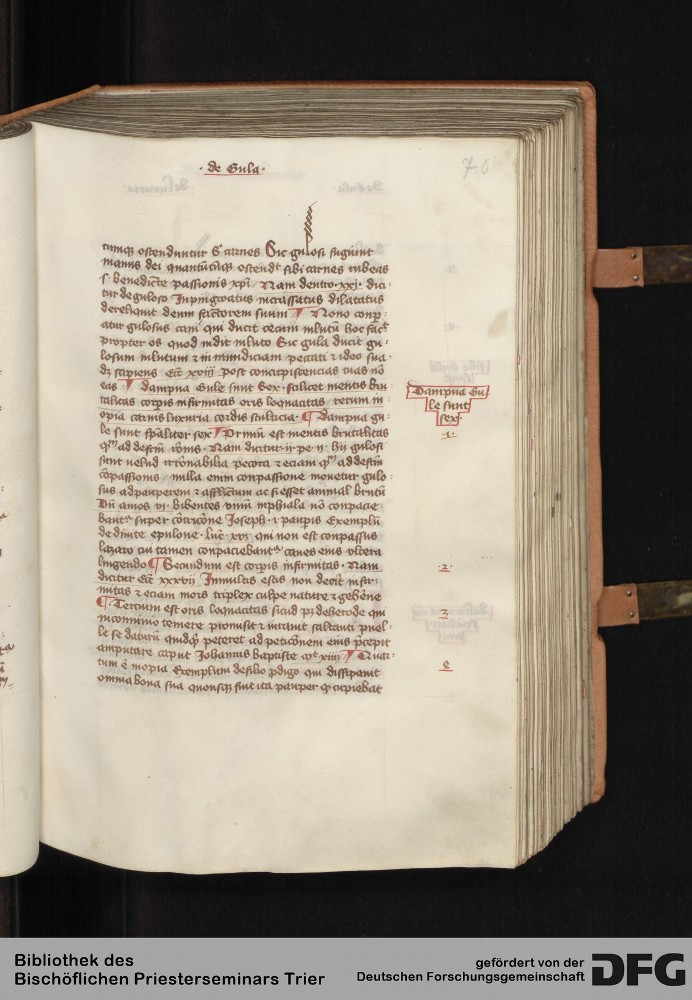 · de Gula ·
70
cumq; ostenduntur s carnes Sic gulosi fugiunt
manus dei quantumcumq; ostendt sibi carnes rubeas
s benedicte passionis xpi / Nam deutro · xxxij · dici
tur de guloso Inpingwatus incrassatus dilatatus
dereliquit deum factorem suum ¶ Nono conp
atur gulosus cani qui ducit cecum in lutum hoc fact
propter os quod in dit in luto Sic gula ducit gu
losum in lutum et in mundiciam peccati et ideo sua
det sapiens Ecci xviij post concupiscencias tuas no
eas ¶ dampna Gule sunt Sex · scilicet mentis bru
talitas corporis infirmitas oris loquacitas rerum in
opia carnis luxuria cordis stulticia · ¶ Dampna gu
le sunt spaliter sex ¶ Primum est mentis brutalitas
ad Nam dicitur ij pe · ij · hij gulosi
sunt velud irronabilia pecora et eciam ad
conpassionis / nulla enim conpassione mouetur gulo
sus ad pauperem et afflictum ac si esset animal brutum
Un amos vi · bibentes vinum in phiala no conpacie
bantr super contricone Joseph · et pauperis Exemplum
de diuite epulone · luc xvi qui non est conpassus
lazaro cui tamen conpaciebantr canes eius vlcera
lingendo ¶ Secundum est corporis infirmitas · Nam
dicitur Ecci xxxvij In multis escis non deerit infir
mitas et eciam mors triplex culpe nature et gehenne
¶ Tercium est oris loquacitas sicud pz de herode qui
in conuiuio temere promisit et iurauit saltanti puel
le se daturum quidquid peteret ad peticonem eius precepit
amputare caput Johannis baptiste xiiij ¶ Quar
tum e inopia Exemplum de filio pdigo qui dissipauit
omnia bona sua quousq; fuit ita pauper q cupiebat
Dampna Gu
le sunt
sex
· 1 ·
· 2 ·
3
Bibliothek des
Bischöflichen Priesterseminars Trier
gefördert von der
Deutschen Forschungsgemeinschaft
DFG